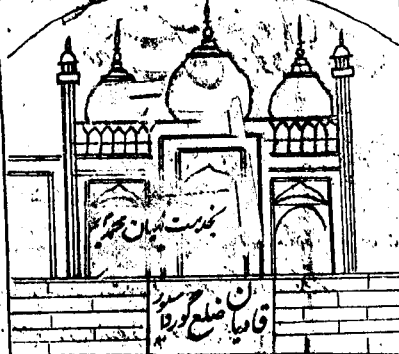 بخدمت میاں محمد
قادیان ضلع گورداسپور